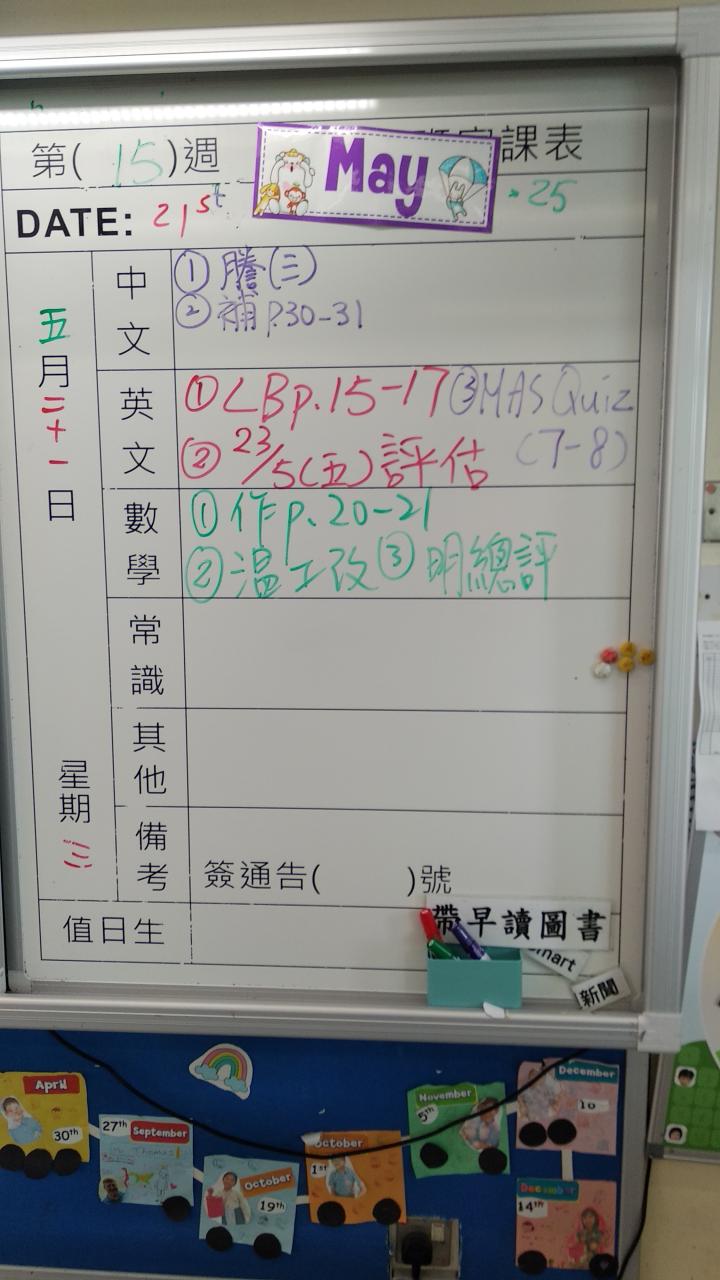 第( 15 )週 May 課表
DATE: 21st ·25
五月二十一日
星期三
中文
① 謄(三)
② 補 p.30-31
英文
① LB p.15-17 ③ MAS Quiz
② 23/5(五)評估 (7-8)
數學
① 作 p. 20-21
② 溫工改 ③ 明總評
常識
其他
備考
簽通告( )號
值日生
帶早讀圖書
mart
新聞
April
30th
27th September
October
19th
October
1st
November
5th
December
10
December
14th